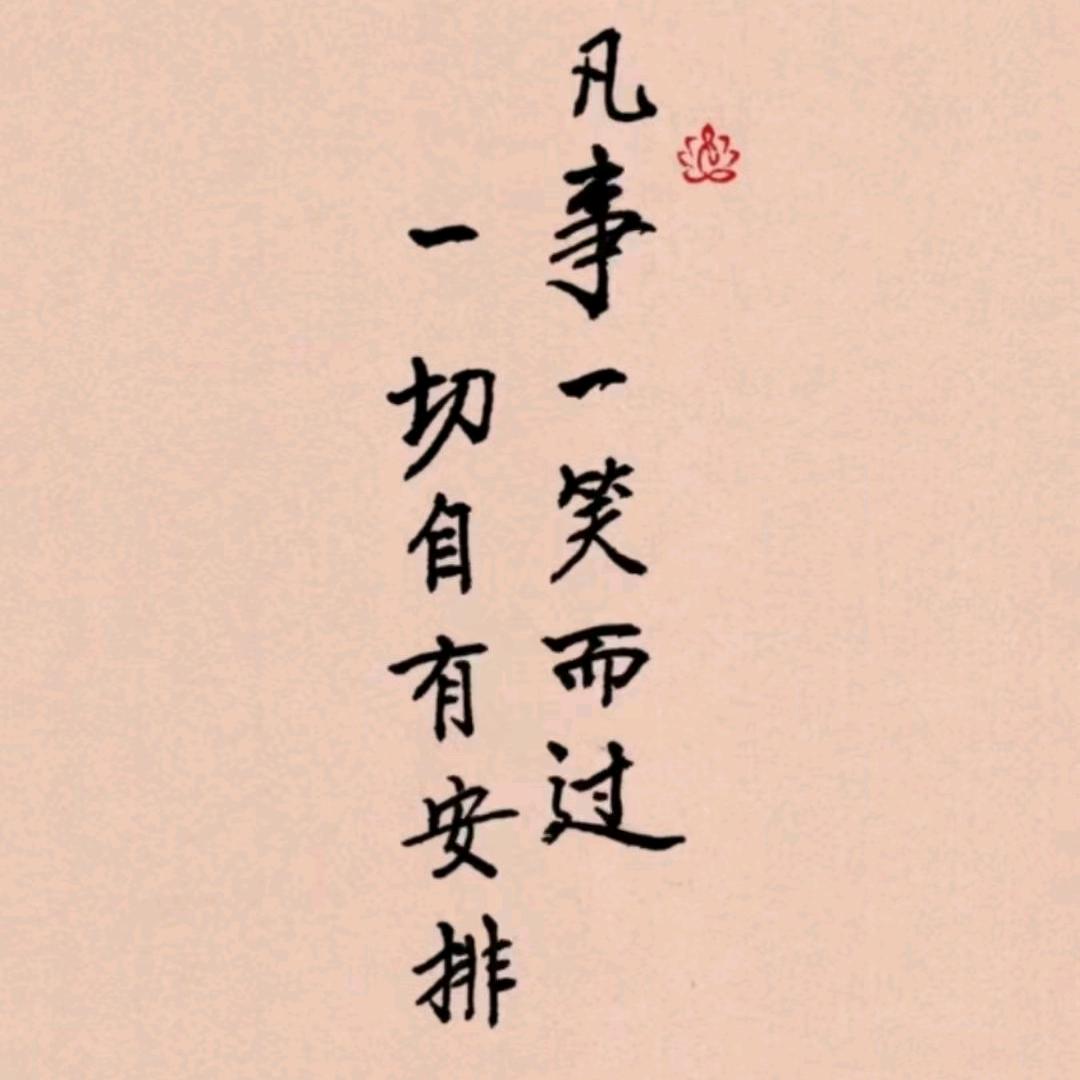 凡事一笑而过
一切自有安排